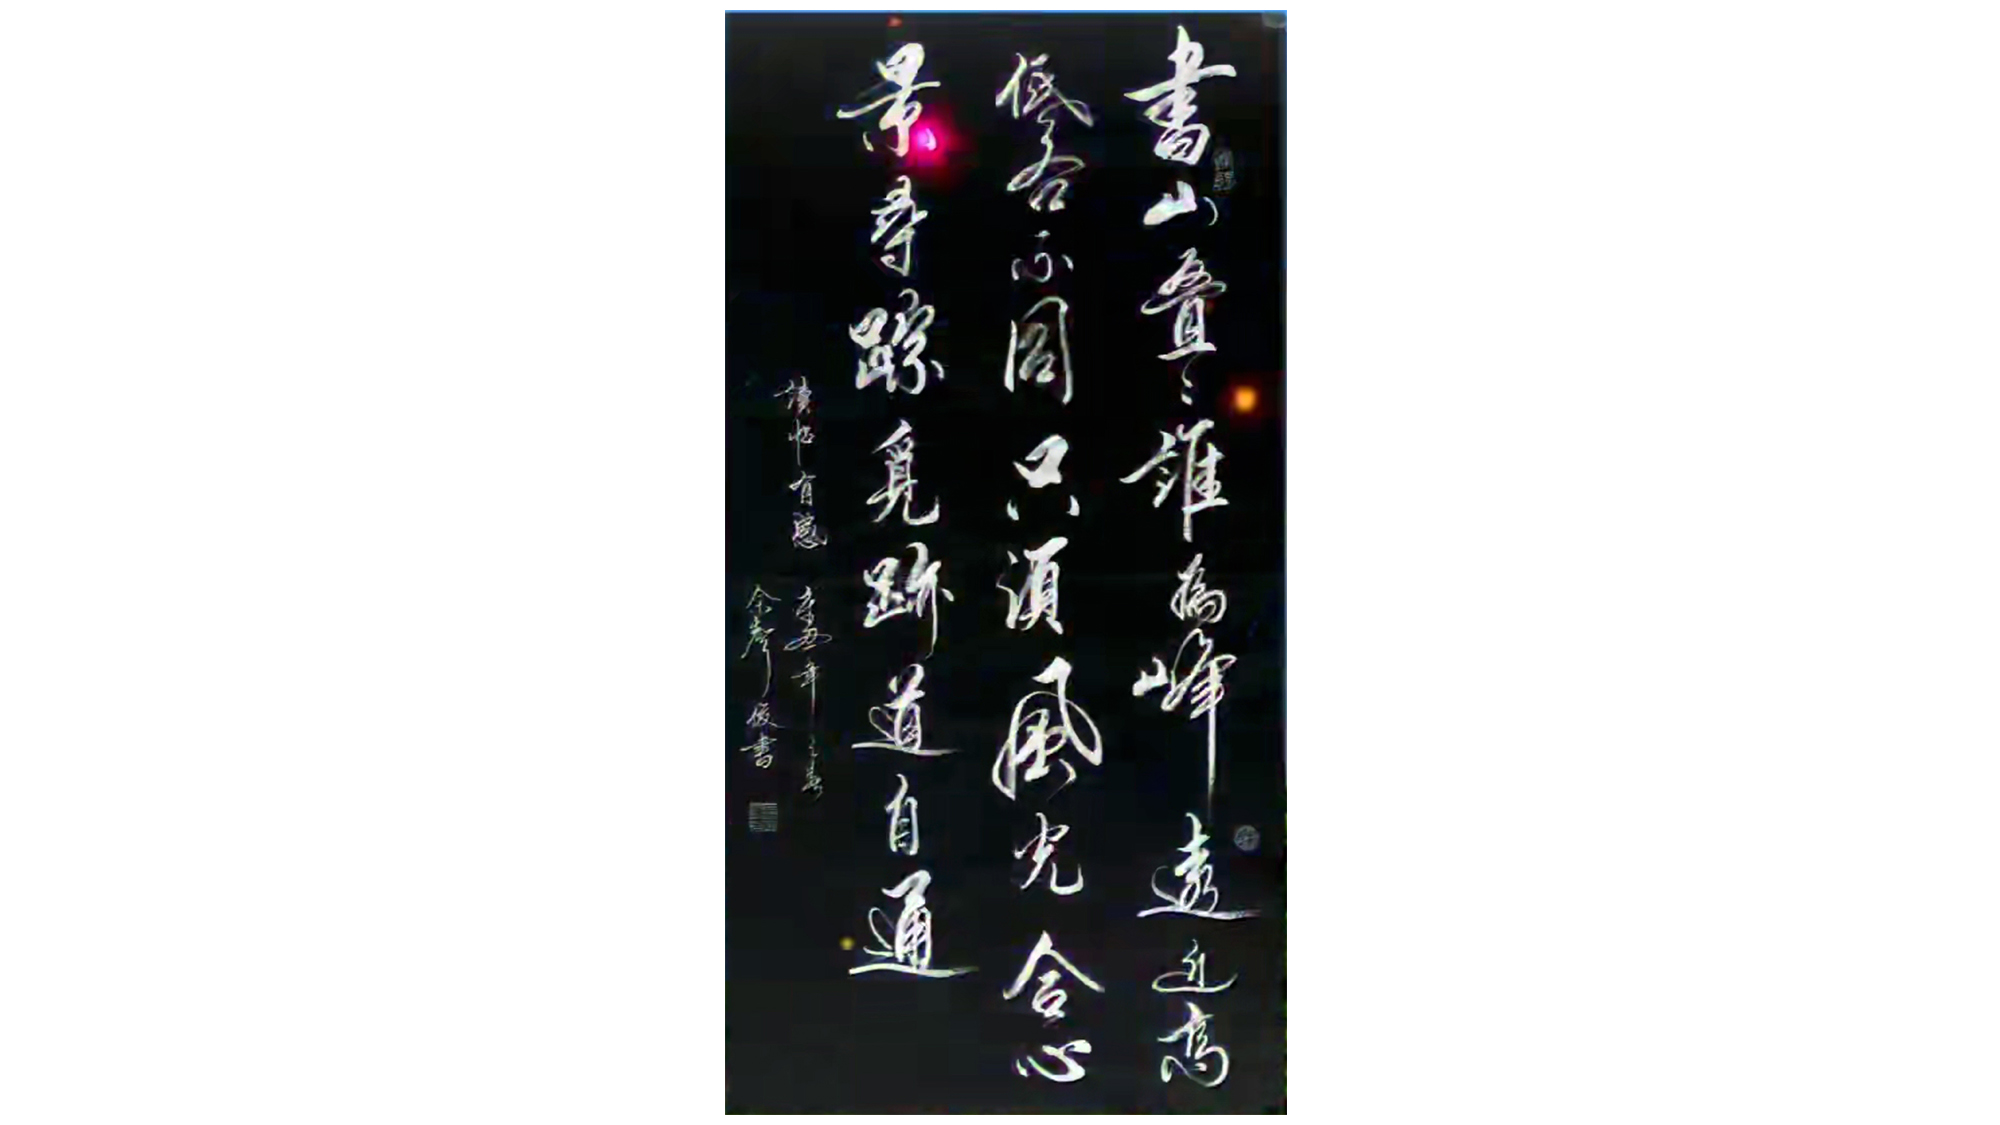 書山叠々誰為峰遠近高
低各不同只須風光含心
景尋踪覓跡道自通
讀帖有感 辛丑年之春
俊書